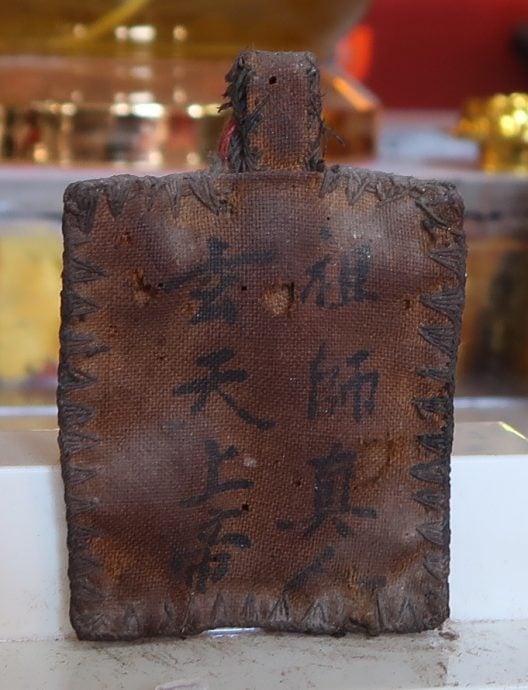 祖師真人
玄天上帝